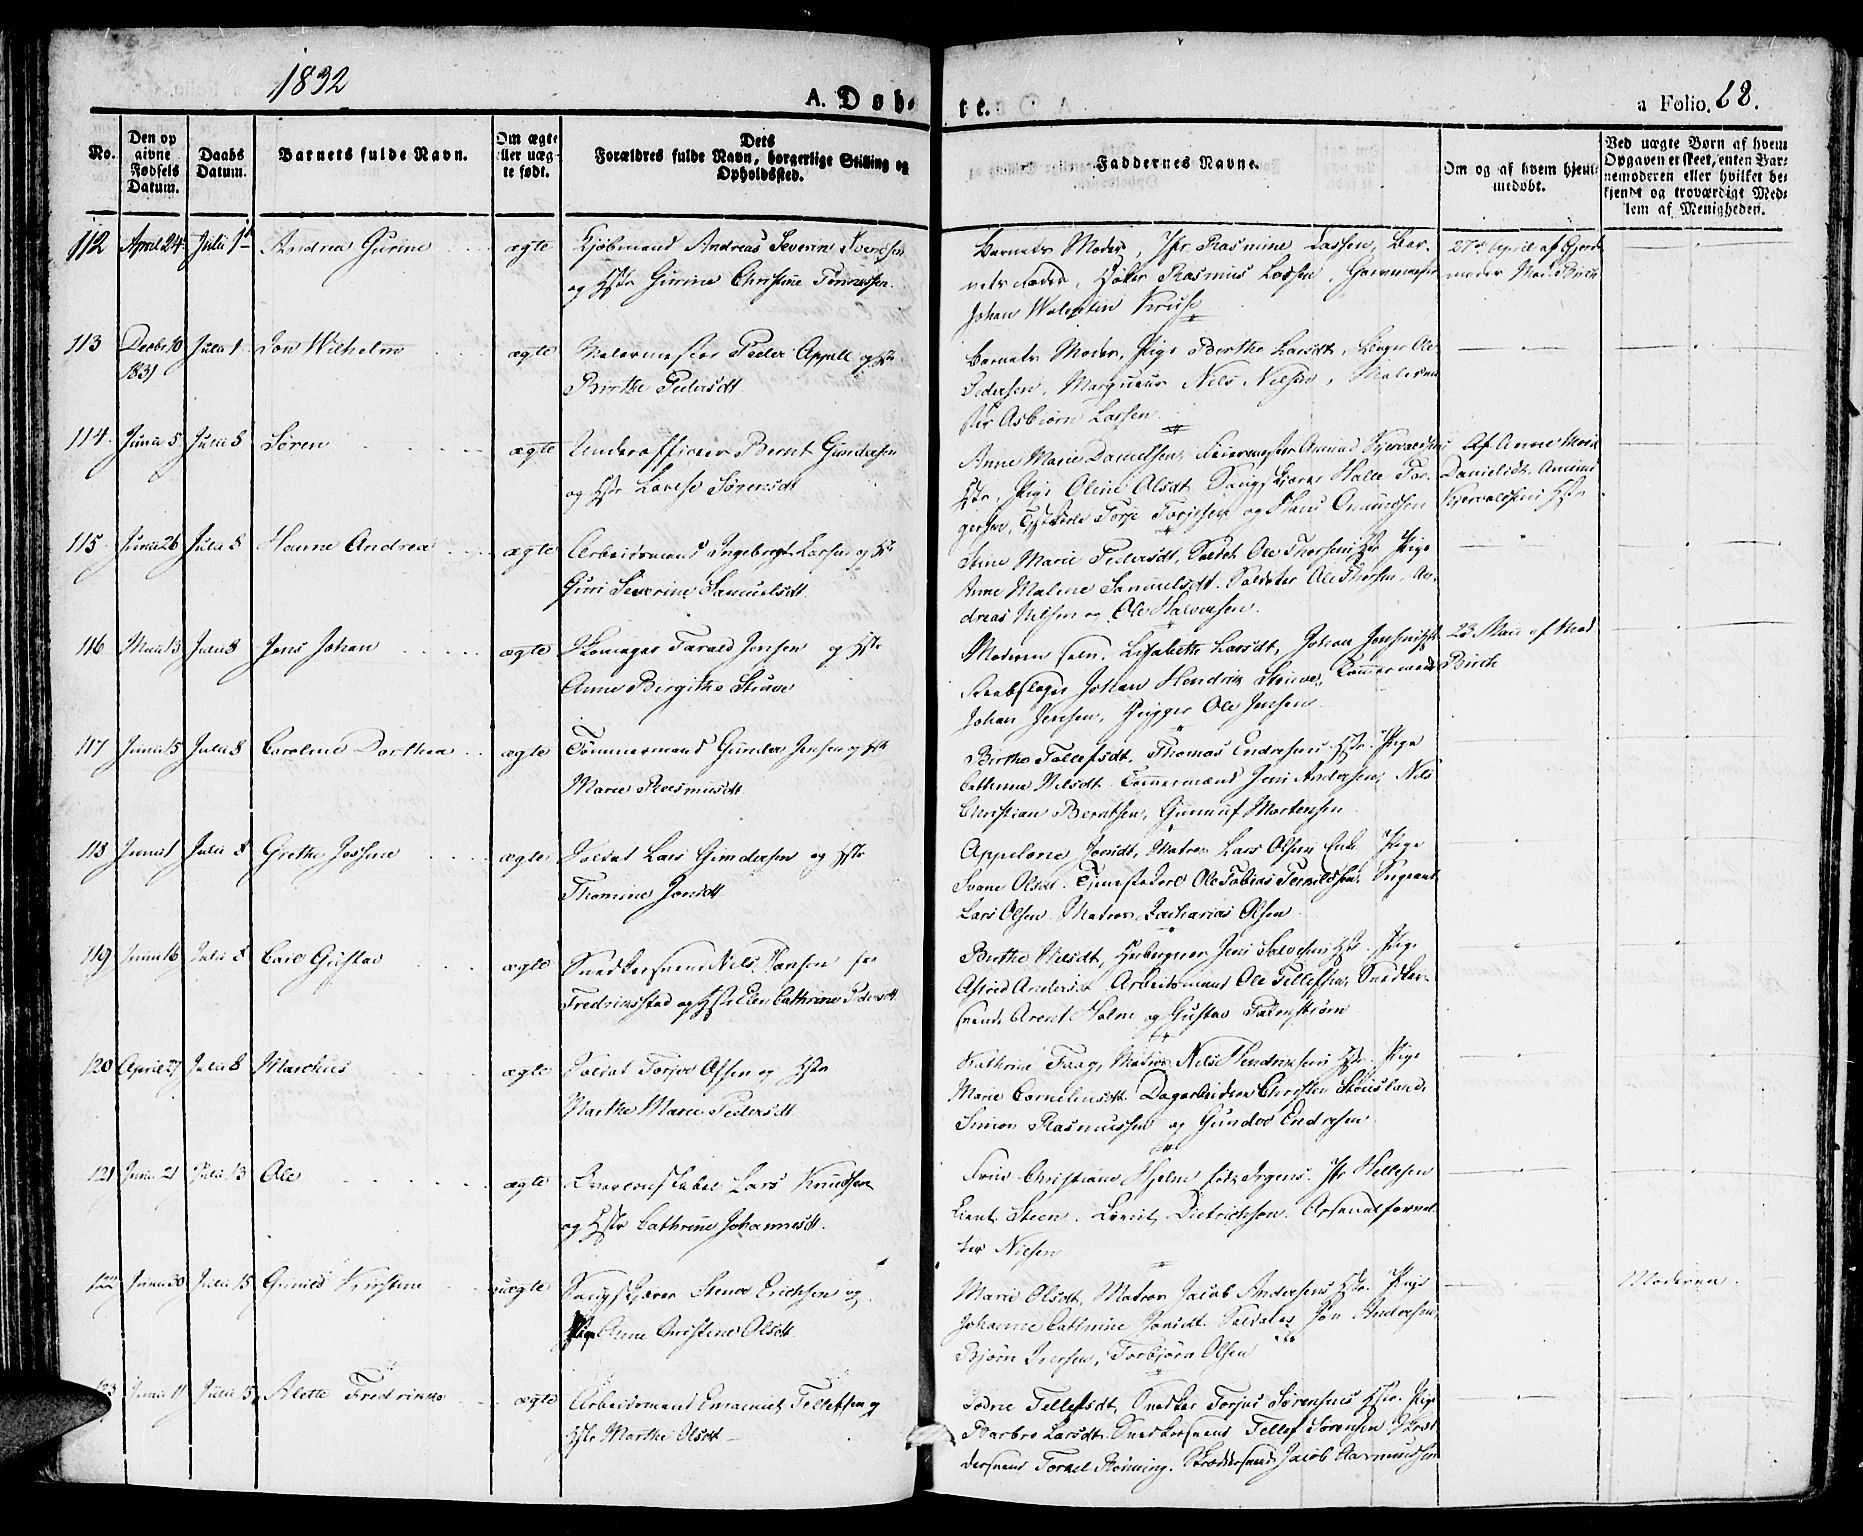 1832
A. Døb-
te.
a Folio. 68.
No.
Den op
givne
Fødsels
Datum.
Daabs
Datum.
Barnets fulde Navn.
Om ægte
eller uæg-
te født.
Dets
Forældres fulde Navn, borgerlige Stilling og
Opholdssted.
Faddernes Navne.
Om og af hvem hjem-
medøbt.
Ved uægte Børn af hvem
Opgaven er skeet, enten Bar-
nemoderen eller hvilket be-
kjendt og troværdigt Med-
lem af Menigheden.
112 April 24 Julii 1 Andrea Gurine ægte Kjøbmand Andreas Severin Svendsen
og Hstr Gurine Christine Tønnesen
Barnets Moder, Jfr Rasmine Lassen, Bar-
nets Fader, Høker Rasmus Lassen, Garvemester
Johan Walentin Kruse
27de April af Gjorde
moder Mad. Birch
113 Decbr 10
1831 Julii 1 Jon Wilhelm ægte Malermester Peder Appell og Hstr
Birthe Pedersdt
Barnets Moder, Pige Berthe Larsdt, Ole
Pedersen, Marqueur Nils Nielsen, Malerme
ster Asbiørn Larsen
114. Junii 5 Julii 8 Søren ægte Underofficeer Bernt Gundersen
og Hstr Lovise Sørensdt
Anne Marie Danielsen, Feiermester Amund
Hstr, Pige Oline Olsdt Halle Tor-
gersen, Torje Torjesen og Hans Omundsen
Af Anne Marie
Danielsdt. Amund
Hstr
115 Junii 26 Julii 8 Hanne Andrea ægte Arbeidsmand Ingebregt Larsen og Hstr
Guri Severine Samuelsdt
Anne Marie Pedersdt, Soldat Ole Thorsens Hstr Pige
Anne Malene Samuelsdt. Soldater Ole Thorsen, An-
dreas Nilsen og Ole Halvorsen.
116 Maii 13 Julii 8 Jens Johan ægte Skomager Tarald Jensen og Hstr
Anne Birgithe Stuwe
Moderen selv. Lisabethe Larsdt, Johan Jensens Hstr
Reebslager Johan Hendrik Stuwe, Tømmermænd
Johan Jensen, Brygger Ole Jensen
23 Maii af Mad
Birch
117 Junii 15 Julii 8 Caroline Dorthea ægte Tømmermand Gunder Jensen og Hstr
Marie Rasmusdt
Birthe Tollefsdt, Thomas Endresens Hstr. Pige
Cathrine Nilsdt. Tømmermænd Jens Andersen, Nils
Christian Berntsen, Gunuld Mortensen
118 Junii 1 Julii 8 Grethe Josine ægte Soldat Lars Gundersen og Hstr
Thomine Jonsdt
Appelone Jonsdt, Matros Lars Olsens Enke Pige
Svane Olsdt. Tjenestekarl Ole Tobias Terkildsen, Sergeant
Lars Olsen. Matros Zacharias Olsen
119 Junii 16 Julii 8 Carl Gustav ægte Snedkersvend Nils Hansen fra
Fredrikstad og Hstr Ellen Cathrine Pedersdt
Birthe Nilsdt, Jens Salvesens Hstr. Pige
Astred Andersdt. Arbeidsmand Ole Tellefsen, Snedker-
svend Arent Holm og Gustav Palmstrøm
120 April 27 Julii 8 Marchus ægte Soldat Torjer Olsen og Hstr
Marthe Marie Pedersdt
Kathrine Faag, Matros Nils Hendriksens Hstr. Pige
Marie Corneliusdt. Dagarbeidere Christen Stousland,
Simon Rasmussen og Gunder Endresen.
121 Junii 21 Julii 13 Ole ægte Overconstabel Lars Knudsen
og Hstr Cathrine Johannesdt.
Frue Christiane Hjelm født Irgens. Jfr Hellesen
Lieut. Steen. Lieut. Dietrichson. Arsenalforval
ter Nielsen
122 Junii 30 Julii 15 Gunild Kirstine uægte Steener Erichsen og
Pige Anne Kirstine Olsdt
Marie Olsdt, Matros Jacob Andersens Hstr. Pige
Johanne Cathrine Jonsdt. Soldater Jon Andersen,
Bjørn Iversen, Torbjørn Olsen
Moderen.
123 Junii 11 Julii 15 Alette Fredrikke ægte Arbeidsmand Emanuel Tellefsen og
Hstr Marthe Olsdt
Tellefsdt, Snedker Torjus Sørensens Hstr. Pige
Barbro Larsdt. Snedkersvend Tellef Sørensen.
dersvend Torkel Rønning. Skræddersvend Jacob Aamundsen